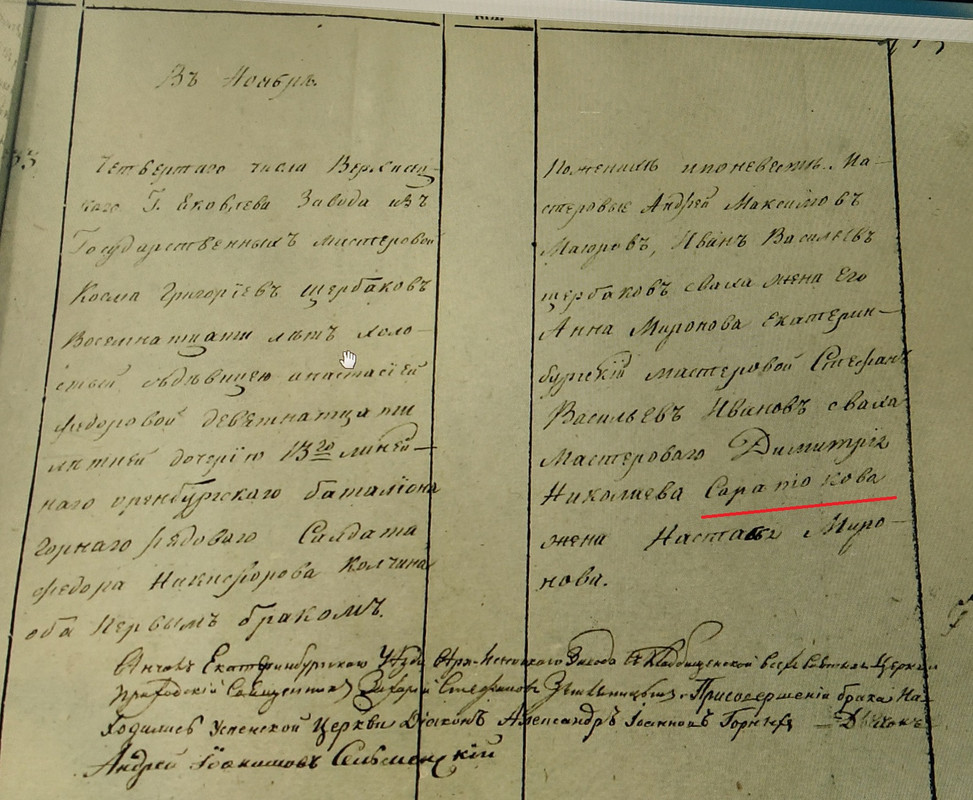 Въ Ноябрѣ.
33
Четвертаго числа Верхисец-
каго Г. Яковлева Завода изъ
Государственныхъ мастеровой
Косма Григорїевъ Щербаковъ
Восемнатцати лѣтъ холо-
стый сдѣвицею Анастасїей
Федоровой девятнатцати
лѣтней дочерїю 13го линей-
наго оренбургскаго баталїона
горнаго рядоваго Солдата
Федора Никифорова Колчина
оба первымъ бракомъ.
Поженихѣ ипоневестѣ. Ма-
стеровые Андрей Максимовъ
Маюровъ, Иванъ Васильевъ
щербаковъ сваха жена Его
Анна Миронова екатерин-
бургскїй мастеровой Стефанъ
Васильевъ Ивановъ сваха
Мастероваго Димитрїя
Николаева Сарапюкова
жена Настасья Миро-
нова.
Екатеринбургскаго Уѣзда Завода Церкви
приходскїй Священникъ Захарїй Стефановъ Присовершенїи брака На-
ходились Успенской Церкви Дїаконъ Александръ Іоанновъ
Андрей Іоакимовъ